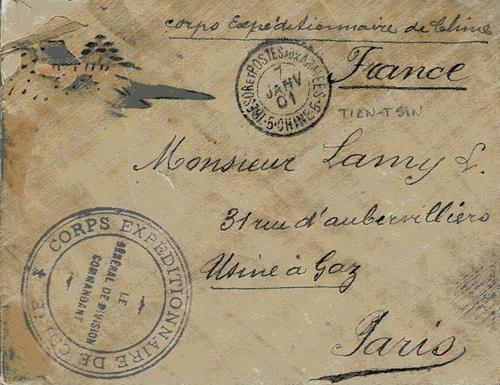 Corps Expéditionnaire de Chine
France
TRESOR ET POSTES AUX ARMEES
7
JANV
01
5·CHINE·5
TIEN-TSIN
Monsieur Lamy L.
31 rue d'aubervilliers
Usine à Gaz
Paris
CORPS EXPÉDITIONNAIRE DE CHINE
LE
GÉNÉRAL DE DIVISION
COMMANDANT